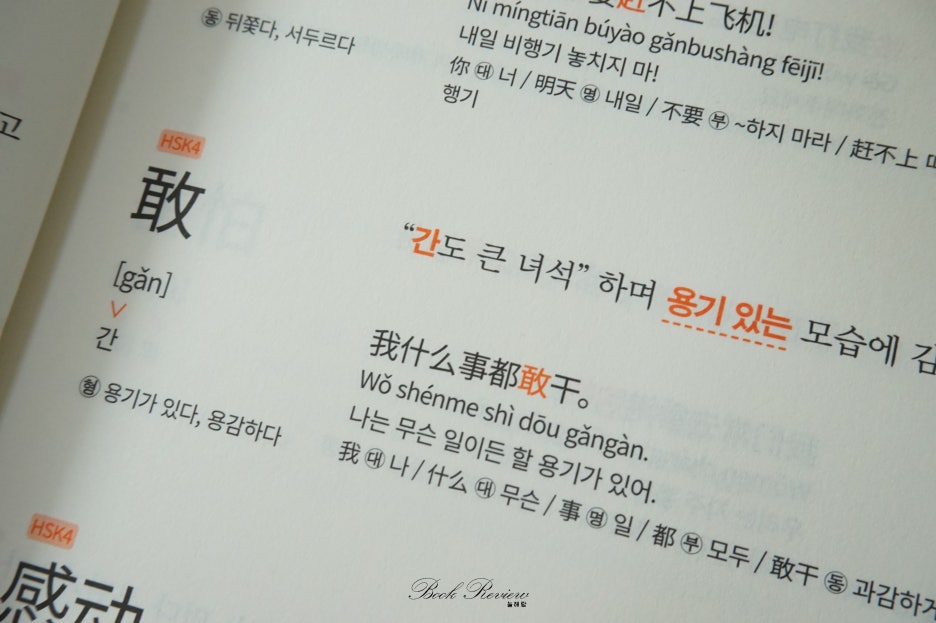 고
동 뒤쫓다, 서두르다
赶不上飞机!
Nǐ míngtiān búyào gǎnbushàng fēijī!
내일 비행기 놓치지 마!
你 대 너 / 明天 명 내일 / 不要 부 ~하지 마라 / 赶不上
행기
HSK4
敢
[gǎn]
간
형 용기가 있다, 용감하다
“간도 큰 녀석” 하며 용기 있는 모습에
我什么事都敢干。
Wǒ shénme shì dōu gǎngàn.
나는 무슨 일이든 할 용기가 있어.
我 대 나 / 什么 대 무슨 / 事 명 일 / 都 부 모두 / 敢干 동 과감하게
HSK4
感动
Book Review